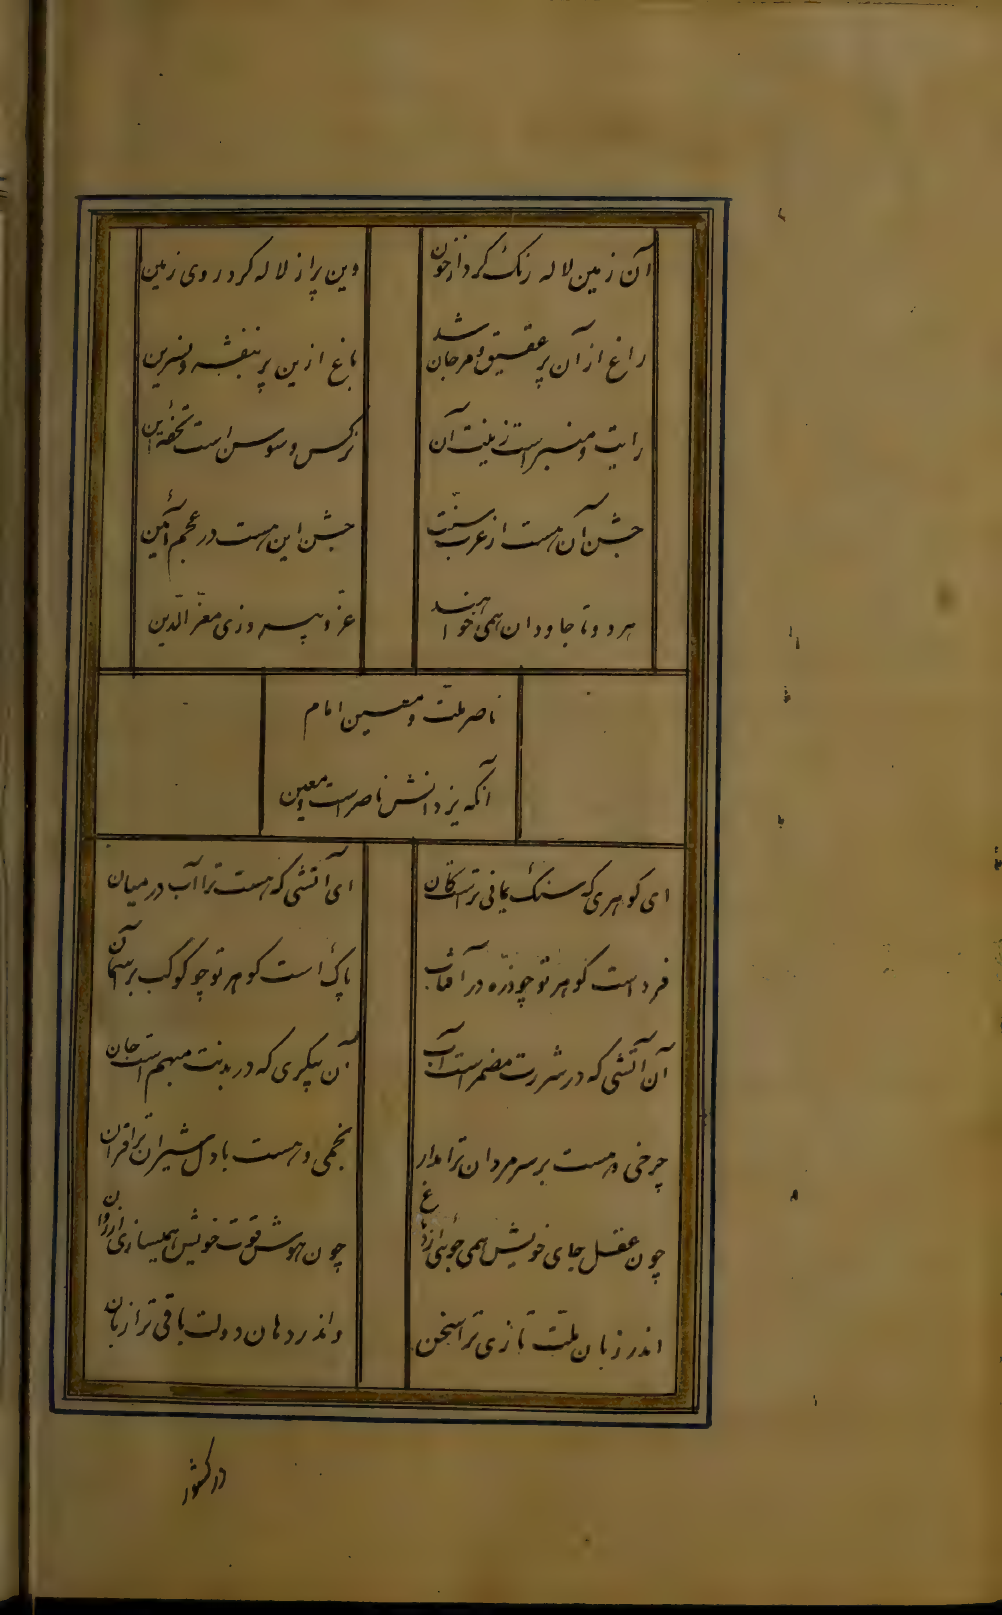 آن زمین لاله رنک کرد از خون
وین پر از لاله کرد روی زمین
راغ از آن پر عقیق و مرجان شد
باغ ازین پر بنفشه و نسرین
رایت و منبر است زینت آن
نرکس و سوسن است تحفهٔ این
جشن آن هست از عرب سنّت
جشن این هست در عجم آئین
هر دو تا جاودان همی خواهند
عزّ و پیروزی معزّ الدّین
ناصر ملّت و معین امام
آنکه یزدانش ناصر است و معین
ای کوهری که سنک یمانی تراست کان
ای آتشی که هست ترا آب در میان
فرد است کوهر تو چو ذرّه در آفتاب
پاک است کوهر تو چو کوکب بر آسمان
آن آتشی که در شررت مضمر است آب
آن پیکری که در بدنت مبهم است جان
چرخی و هست بر سر مردان ترا مدار
نجمی و هست با دل شیران ترا قران
چون عقل جای خویش همی جوئی از دماغ
چون هوش قوت خویش همیسازی از روان
اندر زبان ملّت تازی ترا سخن
واندر دهان دولت باقی ترا زبان
در کشور